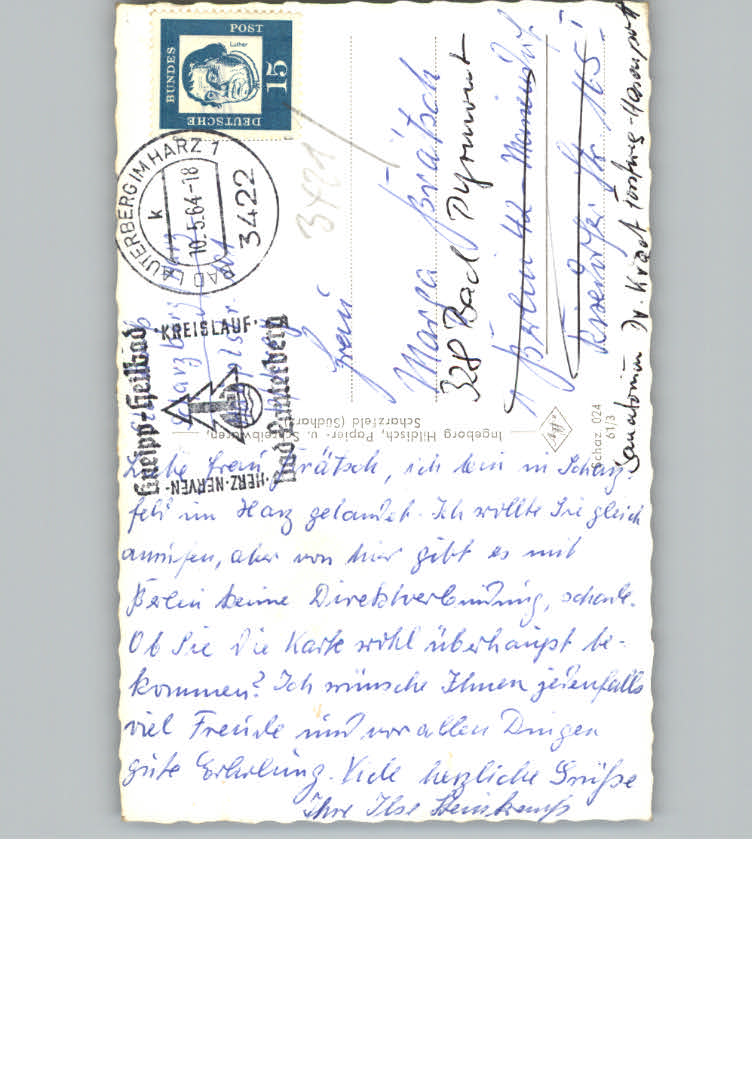 DEUTSCHE
BUNDES
POST
Luther
15
BAD LAUTERBERG IM HARZ 1
k
10.5.64-18
3422
Kneipp-Heilbad
KREISLAUF·
·HERZ·NERVEN·
Bad Lauterberg
3421
Frau
Marga Grätsch
328 Bad Pyrmont
Berlin 42-Mariendorf
Str. 115 I
Sanatorium Dr. Krast
Ingeborg Hildisch, Papier- u. Schreibwaren,
Scharzfeld (Südharz)
Schaz. 024
61/3
Liebe Frau Grätsch, ich bin in Scharz-
feld im Harz gelandet. Ich wollte Sie gleich
anrufen, aber von hier gibt es mit
Berlin keine Direktverbindung, schade.
Ob Sie die Karte wohl überhaupt be-
kommen? Ich wünsche Ihnen jedenfalls
viel Freude und vor allen Dingen
gute Erholung. Viele herzliche Grüße
Ihre Ilse Steinkampf